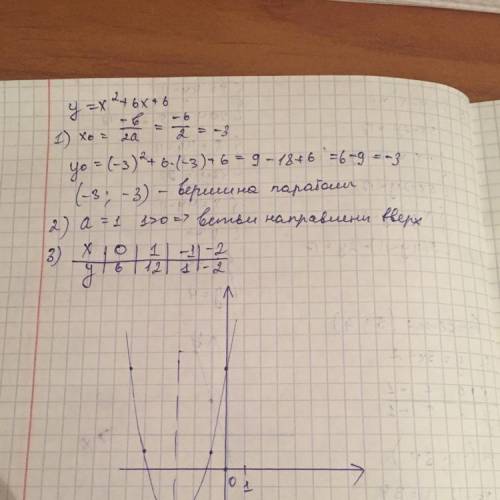 y = x² + 6x + 6
1) x₀ = -b/2a = -6/2 = -3
y₀ = (-3)² + 6·(-3) + 6 = 9 - 18 + 6 = 6 - 9 = -3
(-3; -3) - вершина параболы
2) a = 1 1>0 => ветви направлены вверх
3) x | 0 | 1 | -1 | -2
y | 6 | 12 | 1 | -2
0 1